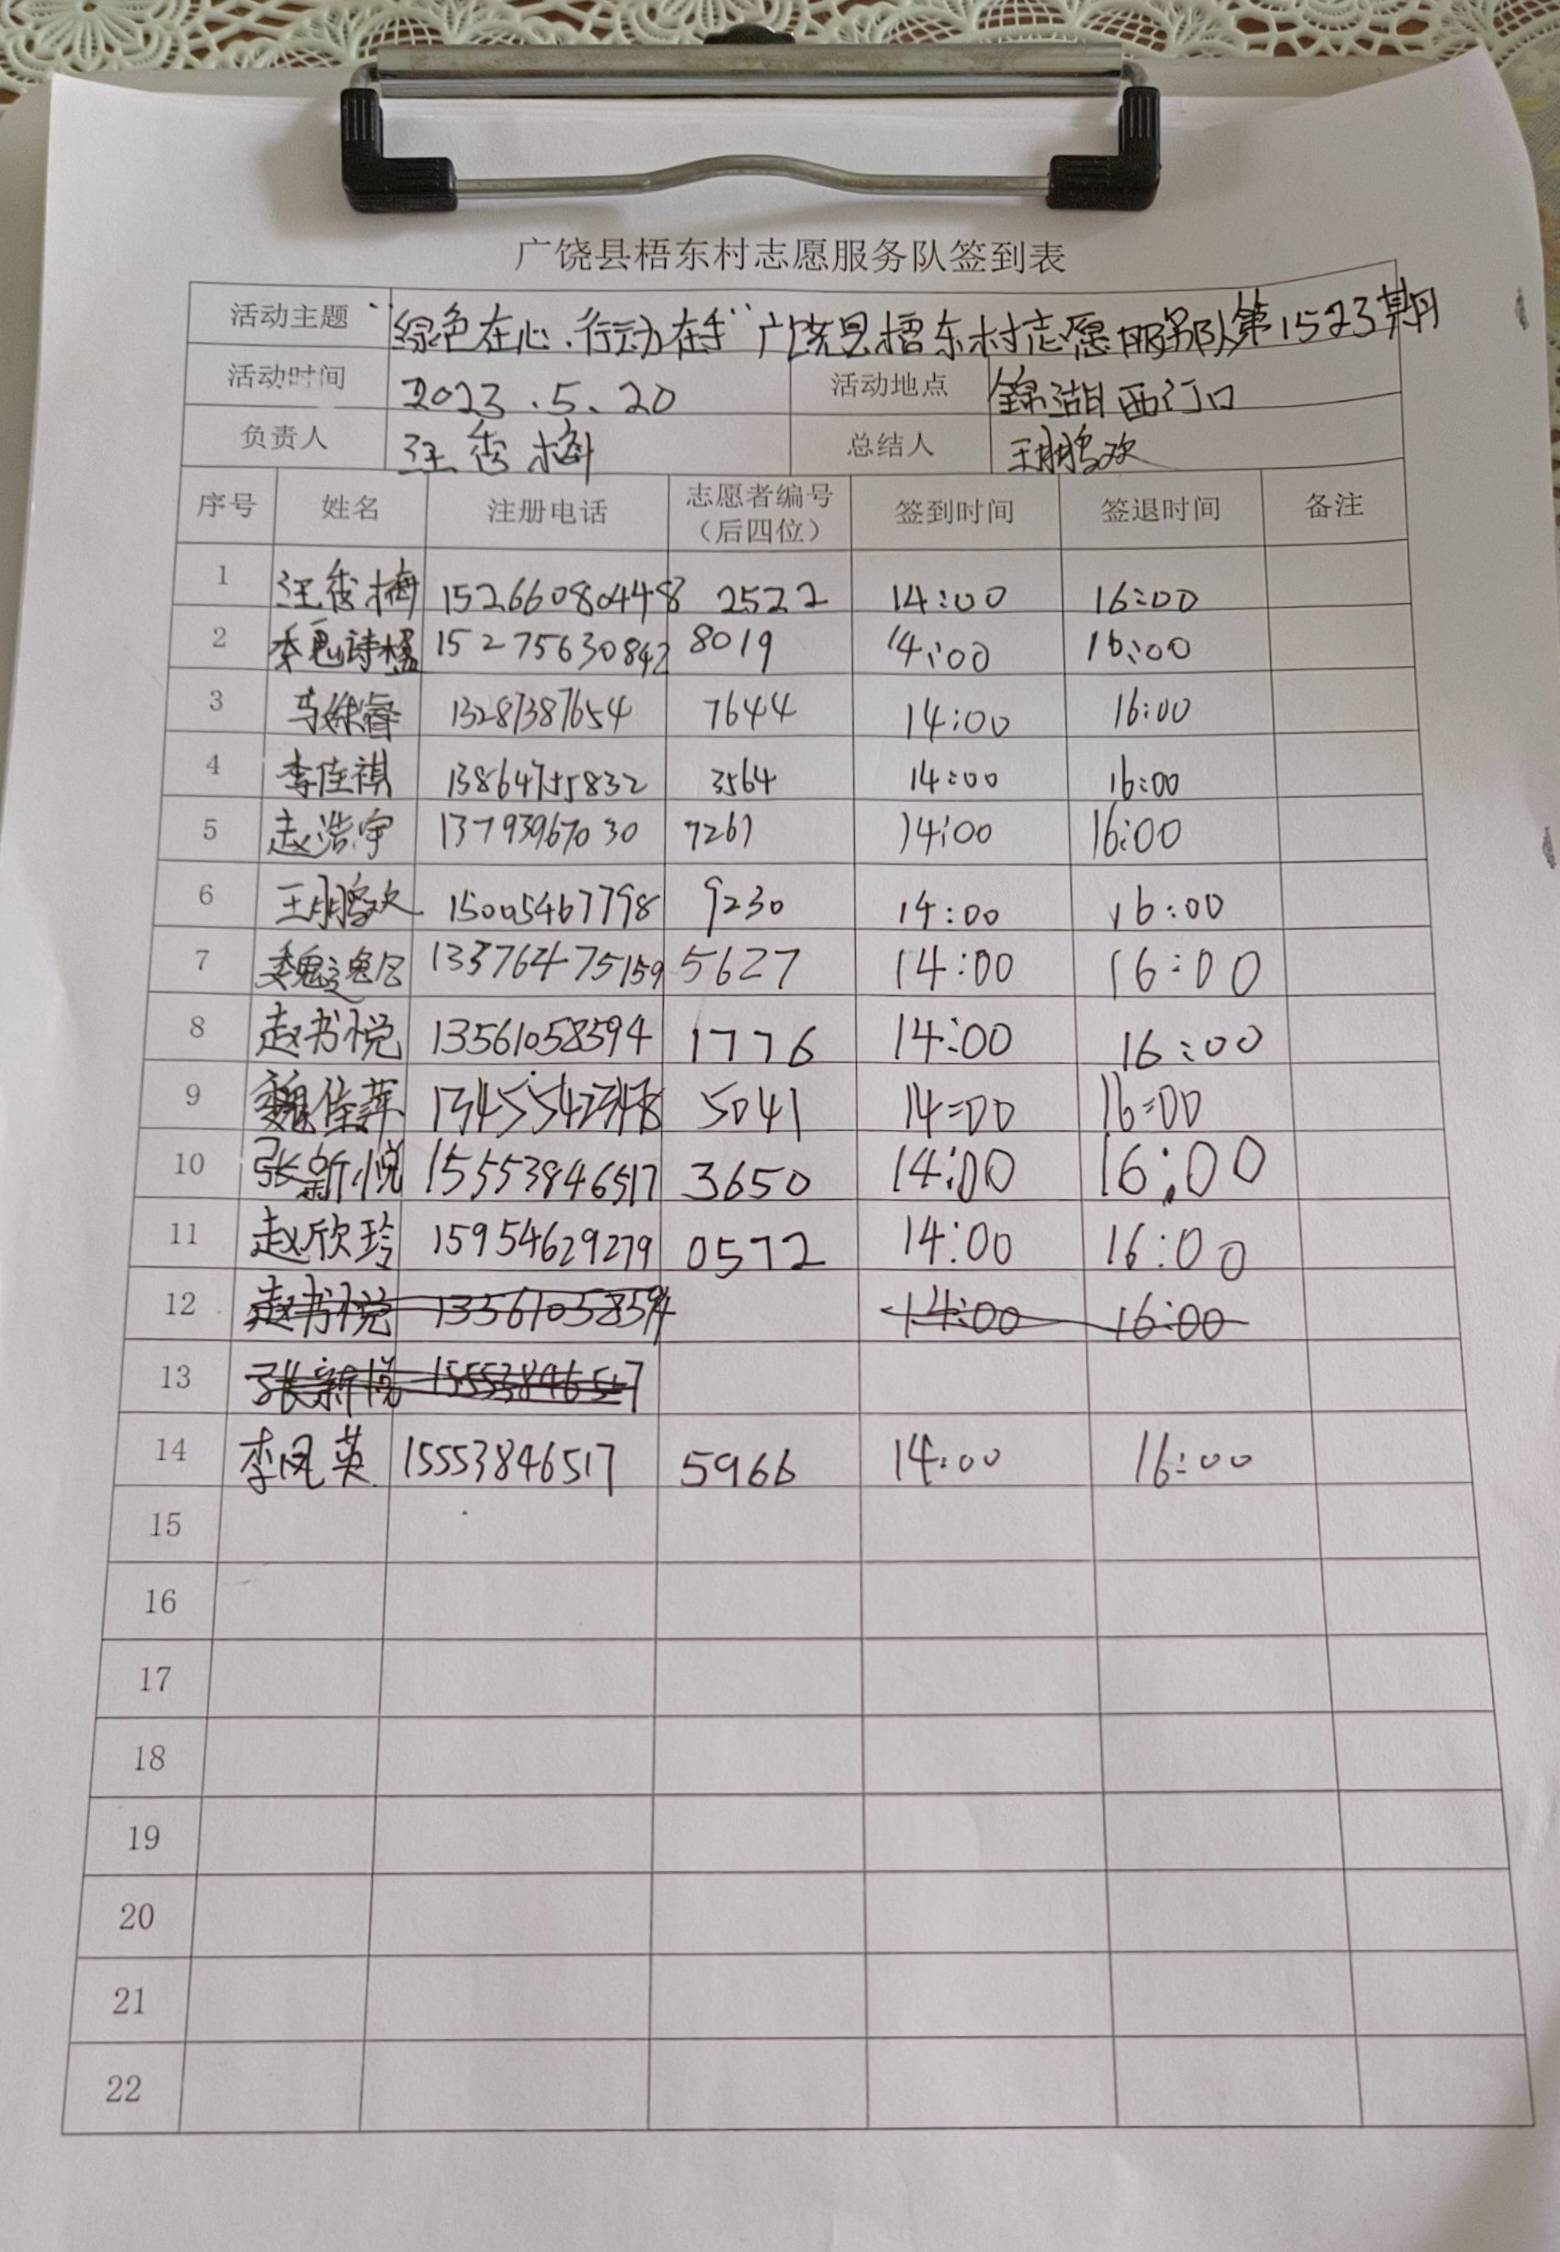 广饶县梧东村志愿服务队签到表
活动主题 “绿色在心、行动在手”广饶县梧东村志愿服务队第1523期
活动时间 2023.5.20 活动地点 锦湖西门口
负责人 汪秀梅 总结人 王鹏欢
序号 姓名 注册电话 志愿者编号（后四位） 签到时间 签退时间 备注
1 汪秀梅 15266080448 2522 14:00 16:00
2 魏诗 15275630842 8019 14:00 16:00
3 马睿 13287387654 7644 14:00 16:00
4 李佳祺 13864755832 3564 14:00 16:00
5 赵浩宇 13793967030 7261 14:00 16:00
6 王鹏欢 15005467798 9230 14:00 16:00
7 魏逸 13376475159 5627 14:00 16:00
8 赵书悦 13561058594 1776 14:00 16:00
9 魏佳萍 5041 14:00 16:00
10 张新悦 15553846517 3650 14:00 16:00
11 赵欣玲 15954629279 0572 14:00 16:00
12 赵书悦 13561058594 14:00 16:00
13 张新悦 15553846517
14 李凤英 15553846517 5966 14:00 16:00
15
16
17
18
19
20
21
22